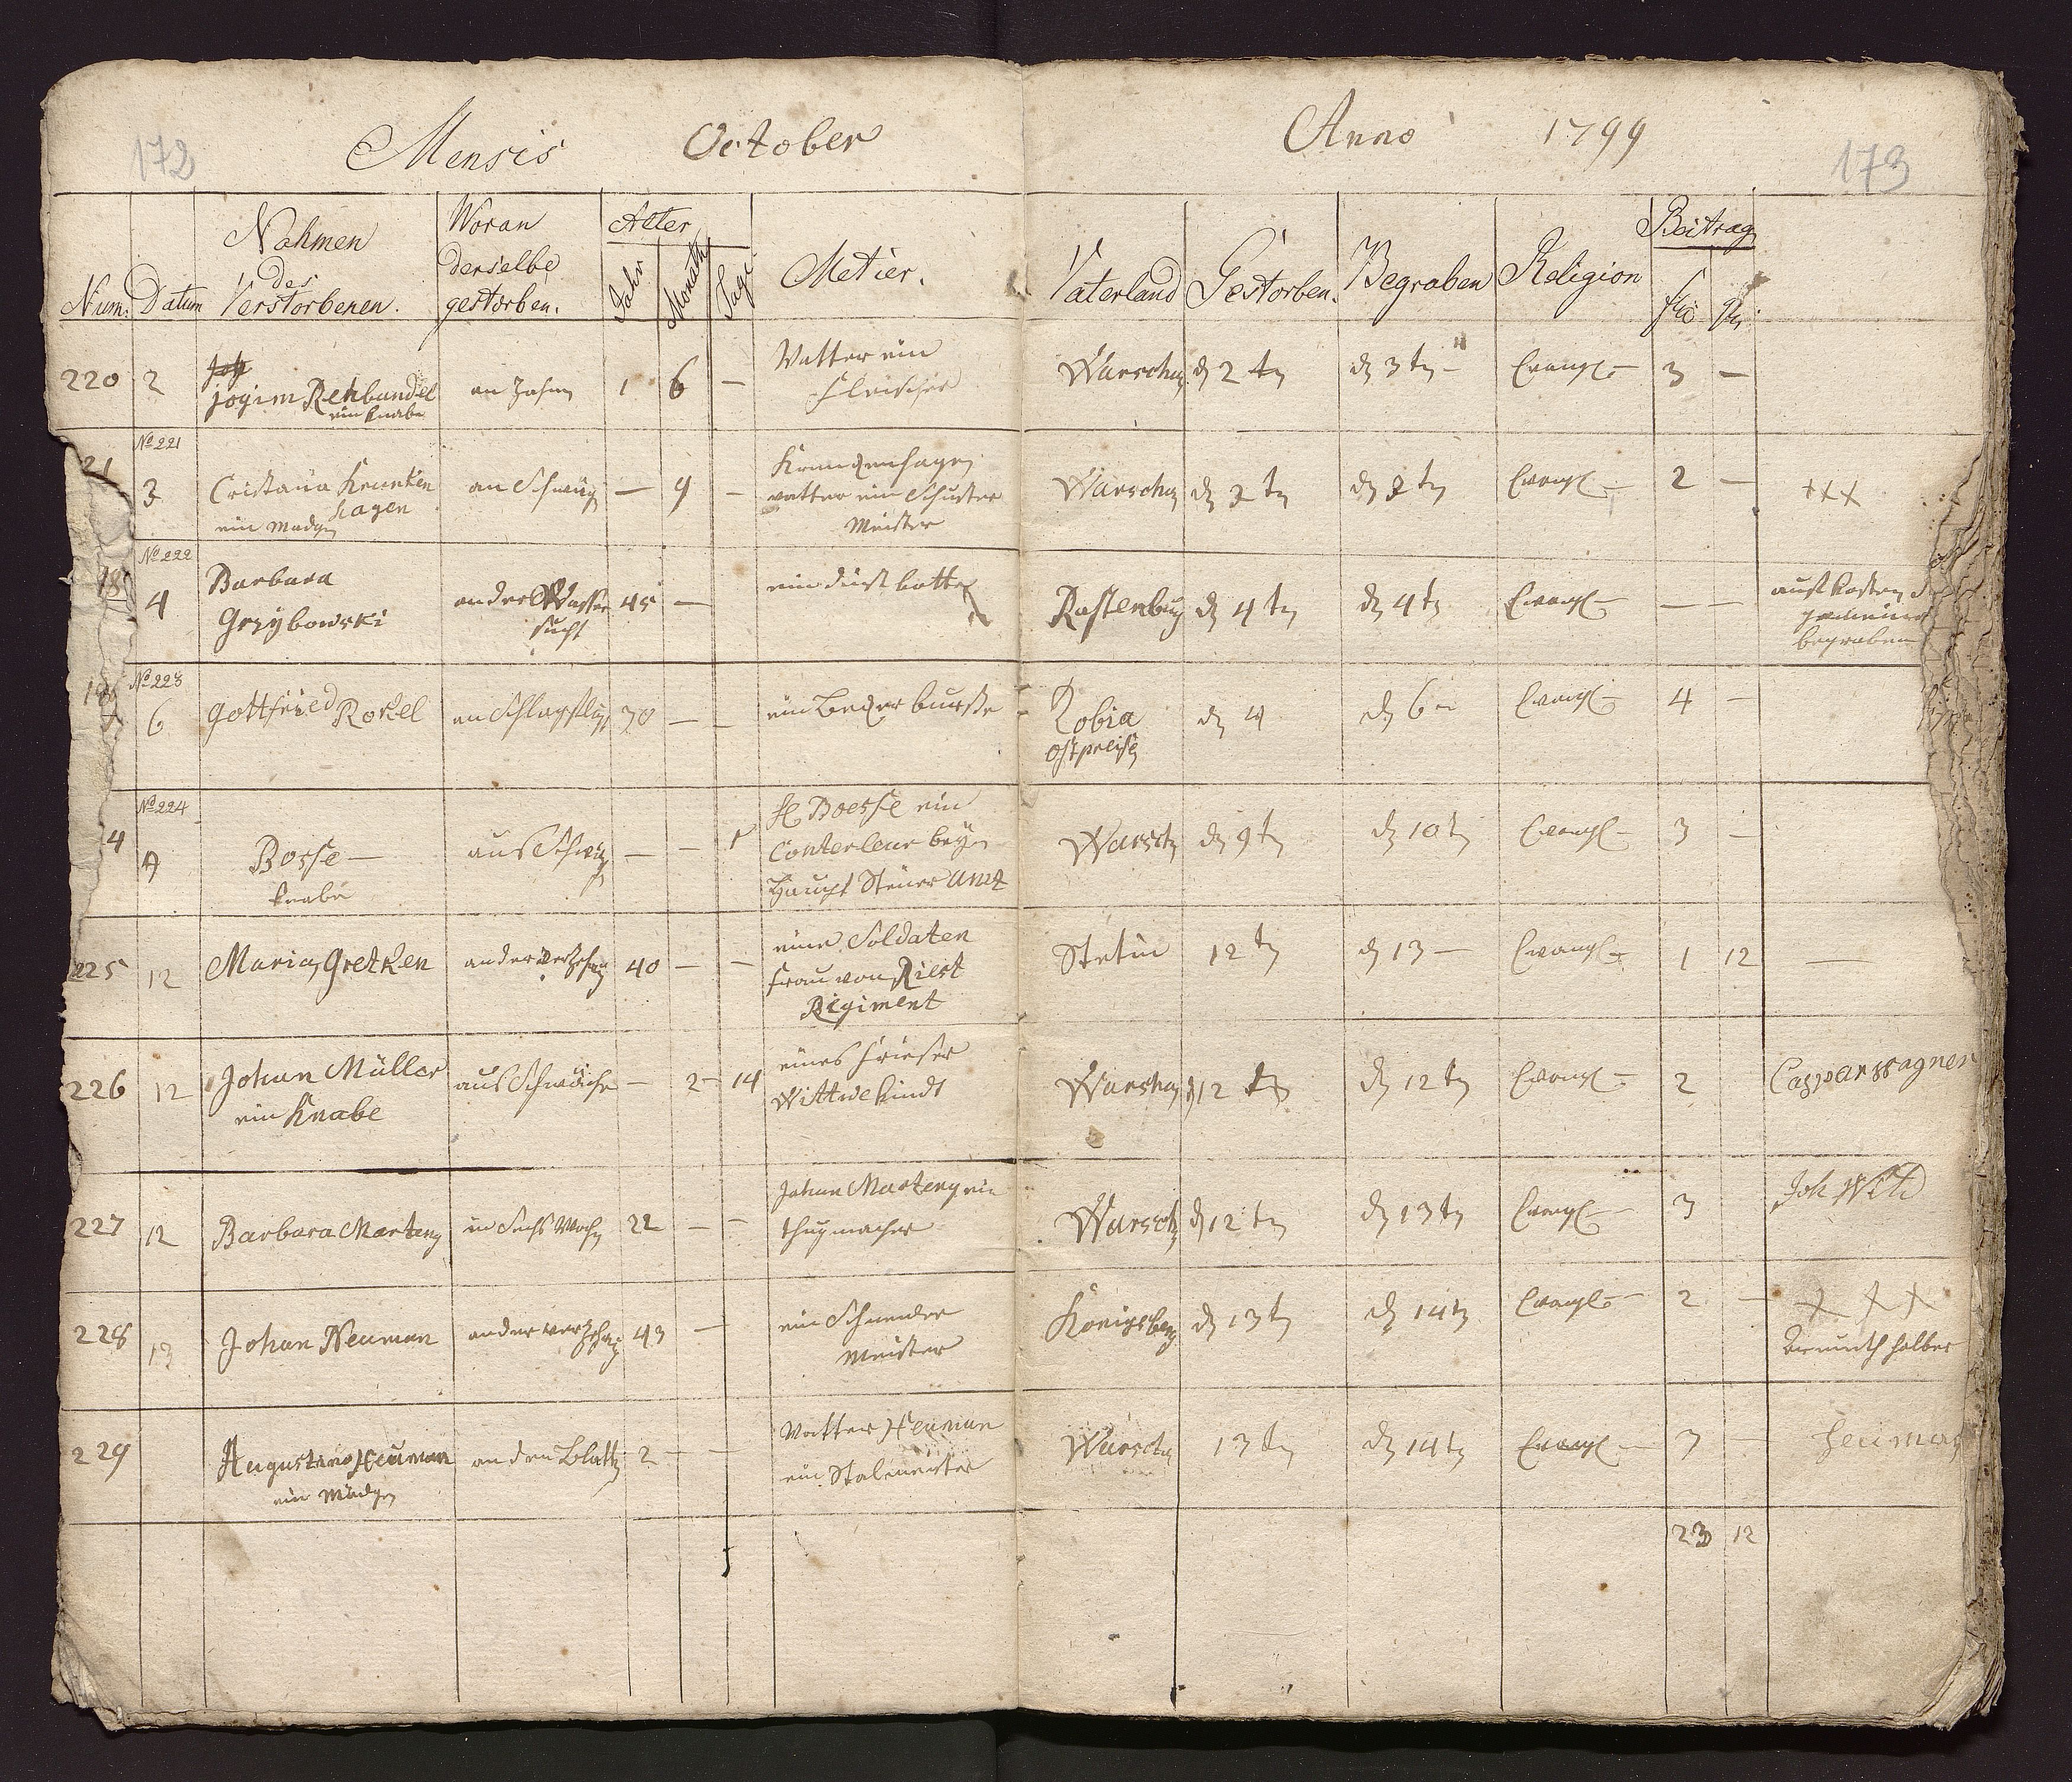 172 Mensis October Anno 1799 173
Num: Datum Nahmen des Verstorbenen. Woran derselbe gestorben. Alter Jahr Monath Tage Metier. Vaterland Gestorben. Begraben Religion Beitrag
220 2 jogim Rehbandel ein Knabe an Zahn 1 6 — Vatter ein Fleischer Warschau d 2 tn d 3 tn — Evangl — 3 —
21 No 221 3 Cristaúa Krunken hagen ein Madgen — 9 — Krunckenhagen vatter ein Schuster Meister Warschau Evangl — 2 — +++
No 222 4 Barbara Grzybowski an der Wasser sucht 45 — Rastenburg d 4 tn d 4 tn Evangl — — — begraben
No 223 6 Gottfried Rokel an Schlagflus 70 — — ein Becker bursche ostpreisen d 4 d 6 — Evangl — 4 —
4 No 224 9 Bosse — Knabe — — 1 H Boesse ein Conterleur beym Haupt Steuer Amt Warsch d 9 t d 10 t Evangl — 3 —
225 12 Maria Gretken an der verzehrung 40 — — eine Soldaten frau von Riest Regiment Stetin 12 t d 13 — Evangl — 1 12 —
226 12 Johan Müller ein Knabe aus Schwäche — 2 — 14 eines Wittwe Kindt Warschau d 12 tn d 12 tn Evangl — 2 Casparwagner
227 12 Barbara Marteny in Sechs Wochn 22 — — Johan Marteny ein Warsch d 12 tn d 13 tn Evangl — 3 Joh
228 13 Johan Neuman an der verzehrung 43 — ein Schneider Meister Königsberg d 13 t d 14 tn Evangl — 2 — + + + Armuth halber
229 Augustina Heuman ein Mädgen an den Blattn 2 — — Vatter Heuman ein Stalmeister Warscha 13 tn d 14 tn Evangl — 3 — Heuman
23 12